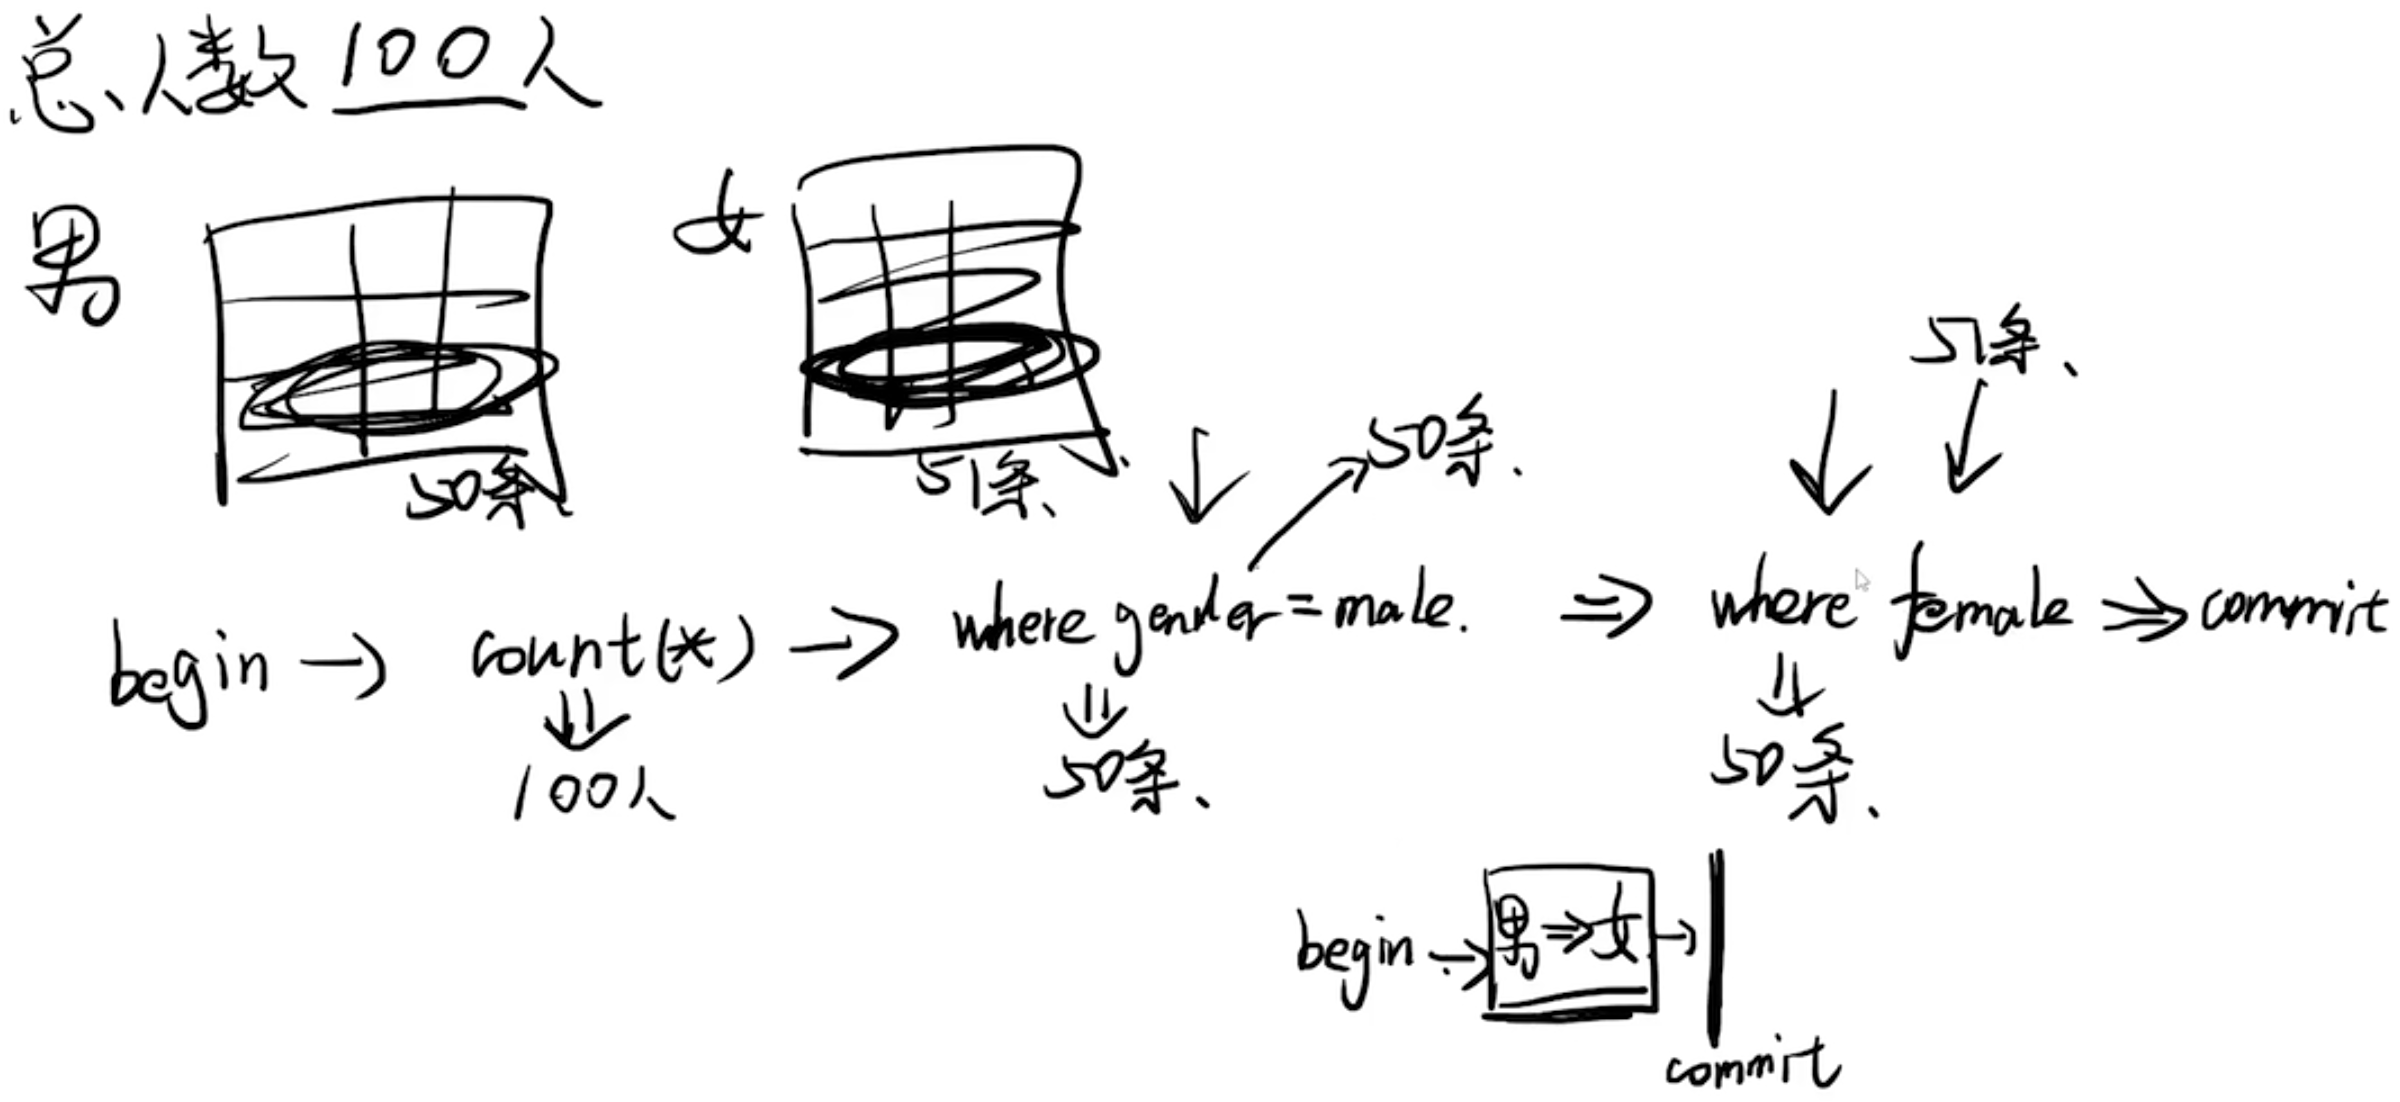 总人数 100人
男
女
50条
51条、
50条.
51条、
begin → count(*) → where gender = male. ⇒ where female ⇒ commit
100人
50条、
50条、
begin → 男 ⇒ 女 →
commit